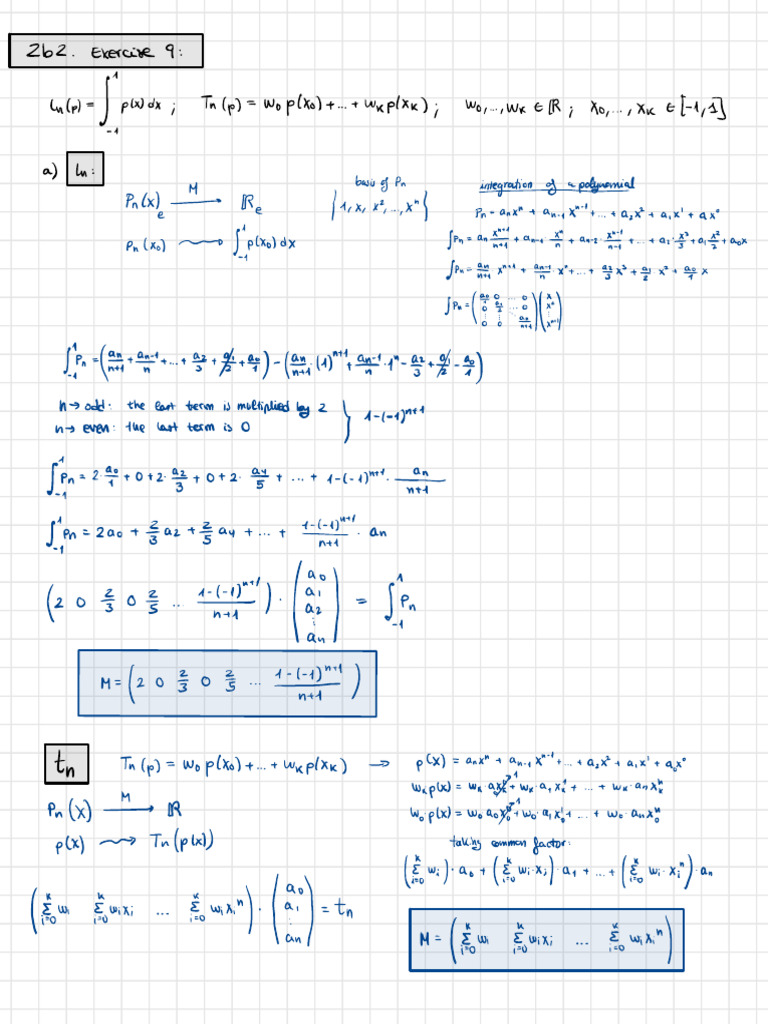 2b2. Exercise 9:
Ln(p) = ∫₋₁¹ p(x) dx ; Tn(p) = w₀ p(x₀) + ... + wₖ p(xₖ) ; w₀, ..., wₖ ∈ ℝ ; x₀, ..., xₖ ∈ [-1, 1]
a) Ln:
Pn(x)ₑ —M→ ℝₑ
pn(x₀) ⟿ ∫₋₁¹ p(x₀) dx
basis of Pn
{1, x, x², ..., xⁿ}
integration of a polynomial
Pn = anxⁿ + an-1 xⁿ⁻¹ + ... + a₂x² + a₁x¹ + ax⁰
∫Pn = an xⁿ⁺¹/n+1 + an-1 xⁿ/n + an-2 · xⁿ⁻¹/n-1 + ... + a₂ · x³/3 + a₁ x²/2 + a₀x
∫Pn = an/n+1 xⁿ⁺¹ + an-1/n xⁿ + ... + a₂/3 x³ + a₁/2 x² + a₀/1 x
∫Pn = (a₀/1 0 ... 0 ; 0 a₁/2 ... 0 ; ⋮ ; 0 0 an/n+1) (x ; x² ; ⋮ ; xⁿ⁺¹)
∫₋₁¹ Pn = (an/n+1 + an-1/n + ... + a₂/3 + a₁/2 + a₀/1) - (an/n+1 · (1)ⁿ⁺¹ + an-1/n · 1ⁿ - a₂/3 + a₁/2 - a₀/1)
n → odd: the last term is multiplied by 2
n → even: the last term is 0
} 1-(-1)ⁿ⁺¹
∫₋₁¹ Pn = 2 · a₀/1 + 0 + 2 · a₂/3 + 0 + 2 · a₄/5 + ... + 1-(-1)ⁿ⁺¹ · an/n+1
∫₋₁¹ Pn = 2a₀ + 2/3 a₂ + 2/5 a₄ + ... + 1-(-1)ⁿ⁺¹/n+1 · an
(2 0 2/3 0 2/5 ... 1-(-1)ⁿ⁺¹/n+1) · (a₀ ; a₁ ; a₂ ; ⋮ ; an) = ∫₋₁¹ Pn
M = (2 0 2/3 0 2/5 ... 1-(-1)ⁿ⁺¹/n+1)
tn
Tn(p) = w₀ p(x₀) + ... + wₖ p(xₖ) →
Pn(x) —M→ ℝ
p(x) ⟿ Tn(p(x))
p(x) = anxⁿ + an-1 xⁿ⁻¹ + ... + a₂x² + a₁x¹ + a₀x⁰
wₖp(x) = wₖ · a₀xₖ⁰ + wₖ · a₁xₖ¹ + ... + wₖ · anxₖⁿ
w₀p(x) = w₀ a₀x₀⁰ + w₀ · a₁x₀¹ + ... + w₀ · anx₀ⁿ
taking common factor:
(Σᵢ₌₀ᵏ wi) · a₀ + (Σᵢ₌₀ᵏ wi · xi) · a₁ + ... + (Σᵢ₌₀ᵏ wi · xiⁿ) · an
(Σᵢ₌₀ᵏ wi Σᵢ₌₀ᵏ wixi ... Σᵢ₌₀ᵏ wixiⁿ) · (a₀ ; a₁ ; ⋮ ; an) = tn
M = (Σᵢ₌₀ᵏ wi Σᵢ₌₀ᵏ wixi ... Σᵢ₌₀ᵏ wixiⁿ)